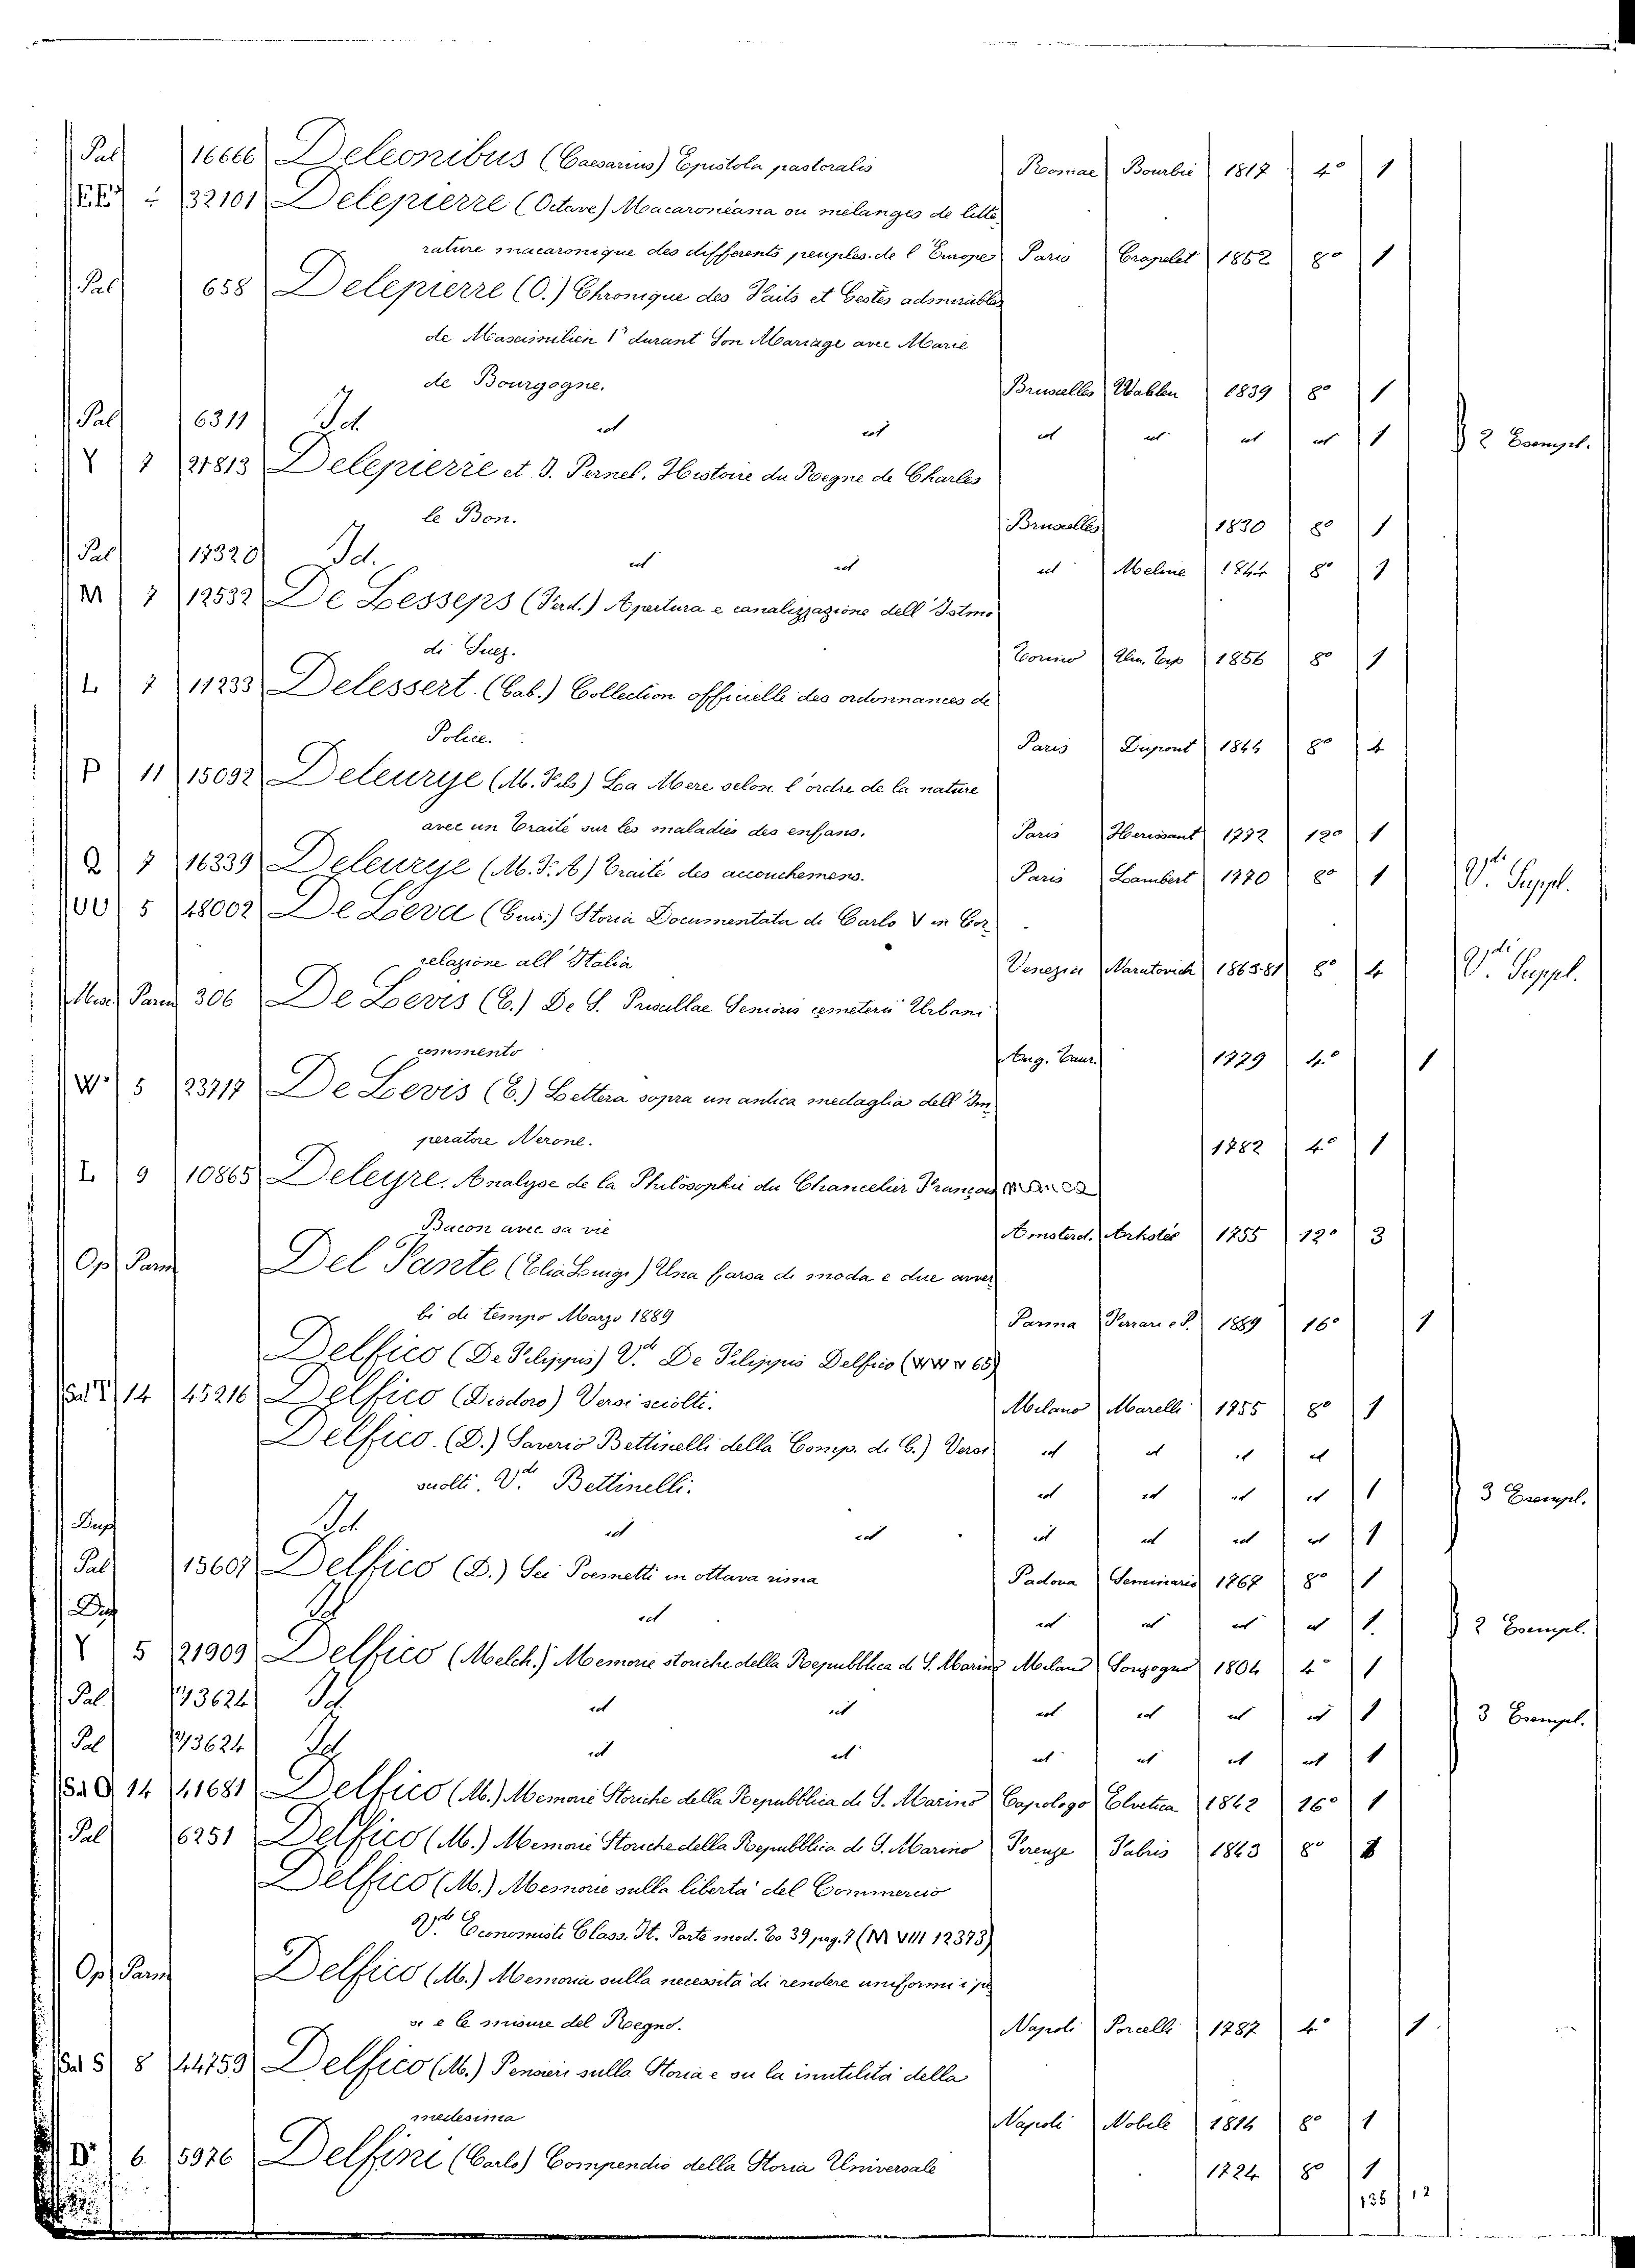 Pal 16666 Deleonibus (Caesarius) Epistola pastoralis Romae Bourlié 1817 4° 1
32101 Delepierre (Octave) Macaronéana ou mélanges de litté-
rature macaronique des differents peuples de l'Europe Paris Crapelet 1852 8° 1
Pal 658 Delepierre (O.) Chronique des Faits et Gestes admirables
de Maximilien 1° durant Son Mariage avec Marie
de Bourgogne. Bruxelles Wahlen 1839 8° 1
Pal 6311 Id. id id id id id id 1 2 Esempl.
Y 7 21813 Delepierre et J. Pernel. Histoire du Regne de Charles
le Bon. Bruxelles 1830 8° 1
Pal 17320 Id. id id id Meline 1844 8° 1
M 7 12532 De Lesseps (Ferd.) Apertura e canalizzazione dell' Istmo
di Suez. Torino Un. Tip 1856 8° 1
L 7 11233 Delessert. (Gab.) Collection officielle des ordonnances de
Police. Paris Dupont 1844 8° 4
P 11 15092 Deleurye (M. Fils) La Mere selon l'ordre de la nature
avec un Traité sur les maladies des enfans. Paris Herissant 1772 12° 1
Q 7 16339 Deleurye (M. F. A) Traité des accouchemens. Paris Lambert 1770 8° 1 V.di Suppl.
UU 5 48002 De Leva (Gius.) Storia Documentata di Carlo V in Cor-
relazione all' Italia Venezia Naratovich 1863-81 8° 4 V.di Suppl.
Misc Parm 306 De Levis (E.) De S. Priscillae Senioris cemeterii Urbani
commento Aug. Taur. 1779 4° 1
W 5 23717 De Levis (E.) Lettera sopra un antica medaglia dell' Im-
peratore Nerone. 1782 4° 1
L 9 10865 Deleyre. Analyse de la Philosophie du Chancelier François
Bacon avec sa vie Amsterd. Arkstée 1755 12° 3
Op Parm Del Fante (Elia Luigi) Una farsa di moda e due avver-
bi di tempo Marzo 1889 Parma Ferrari e P. 1889 16° 1
Delfico (De Filippis) V.di De Filippis Delfico
Sal T 14 45216 Delfico (Diodoro) Versi sciolti. Milano Marelli 1755 8° 1
Delfico. (D.) Saverio Bettinelli della Comp. di G.) Versi id id id id
sciolti. V.di Bettinelli. id id id id 1 3 Esempl.
Dup Id id id id id id id 1
Pal 15607 Delfico (D.) Sei Poemetti in ottava rima Padova Seminario 1767 8° 1
Dup Id id id id id id 1. 2 Esempl.
Y 5 21909 Delfico (Melch.) Memorie storiche della Repubblica di S. Marino Milano Sonzogno 1804 4° 1
Pal. 13624 Id id id id id id id 1 3 Esempl.
Pal 13624 Id id id id id id id 1
Sal Q 14 41681 Delfico (M.) Memorie Storiche della Repubblica di S. Marino Capolago Elvetica 1842 16° 1
Pal 6251 Delfico (M.) Memorie Storiche della Repubblica di S. Marino Firenze Fabris 1843 8°
Delfico (M.) Memorie sulla libertà del Commercio
V.di Economisti Class. It. Parte mod. To 39 pag. 7 (M VIII 12373)
Op Parm Delfico (M.) Memoria sulla necessità di rendere uniformi i pe-
si e le misure del Regno. Napoli Porcelli 1787 4° 1
Sal S 8 44759 Delfico (M.) Pensieri sulla Storia e su la inutilità della
medesima Napoli Nobile 1814 8° 1
D 6 5976 Delfini (Carlo) Compendio della Storia Universale 1724 8° 1
135 12